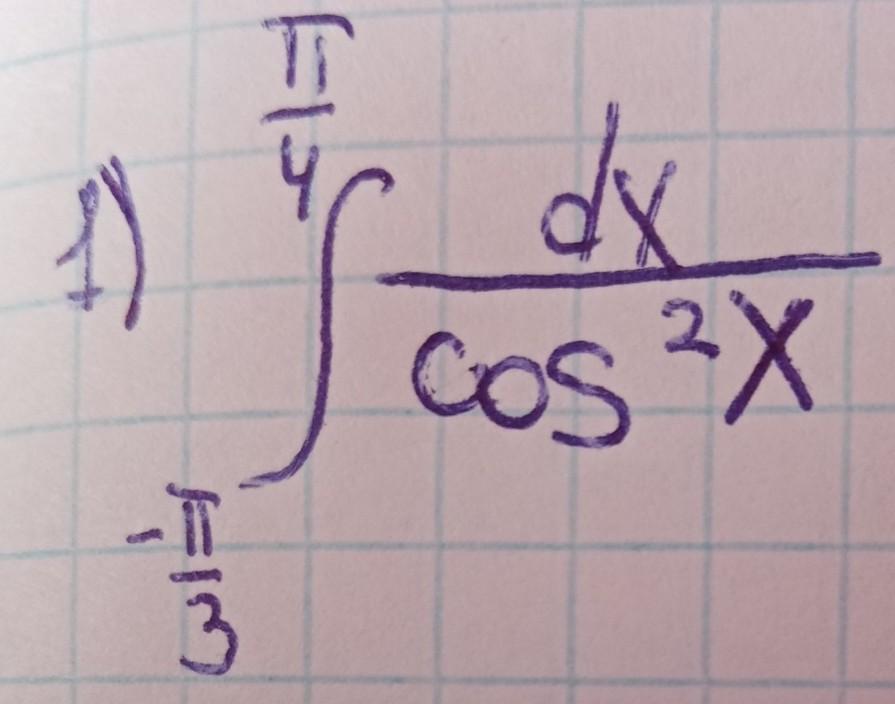 1) \int_{-\frac{\pi}{3}}^{\frac{\pi}{4}} \frac{dx}{\cos^2 x}